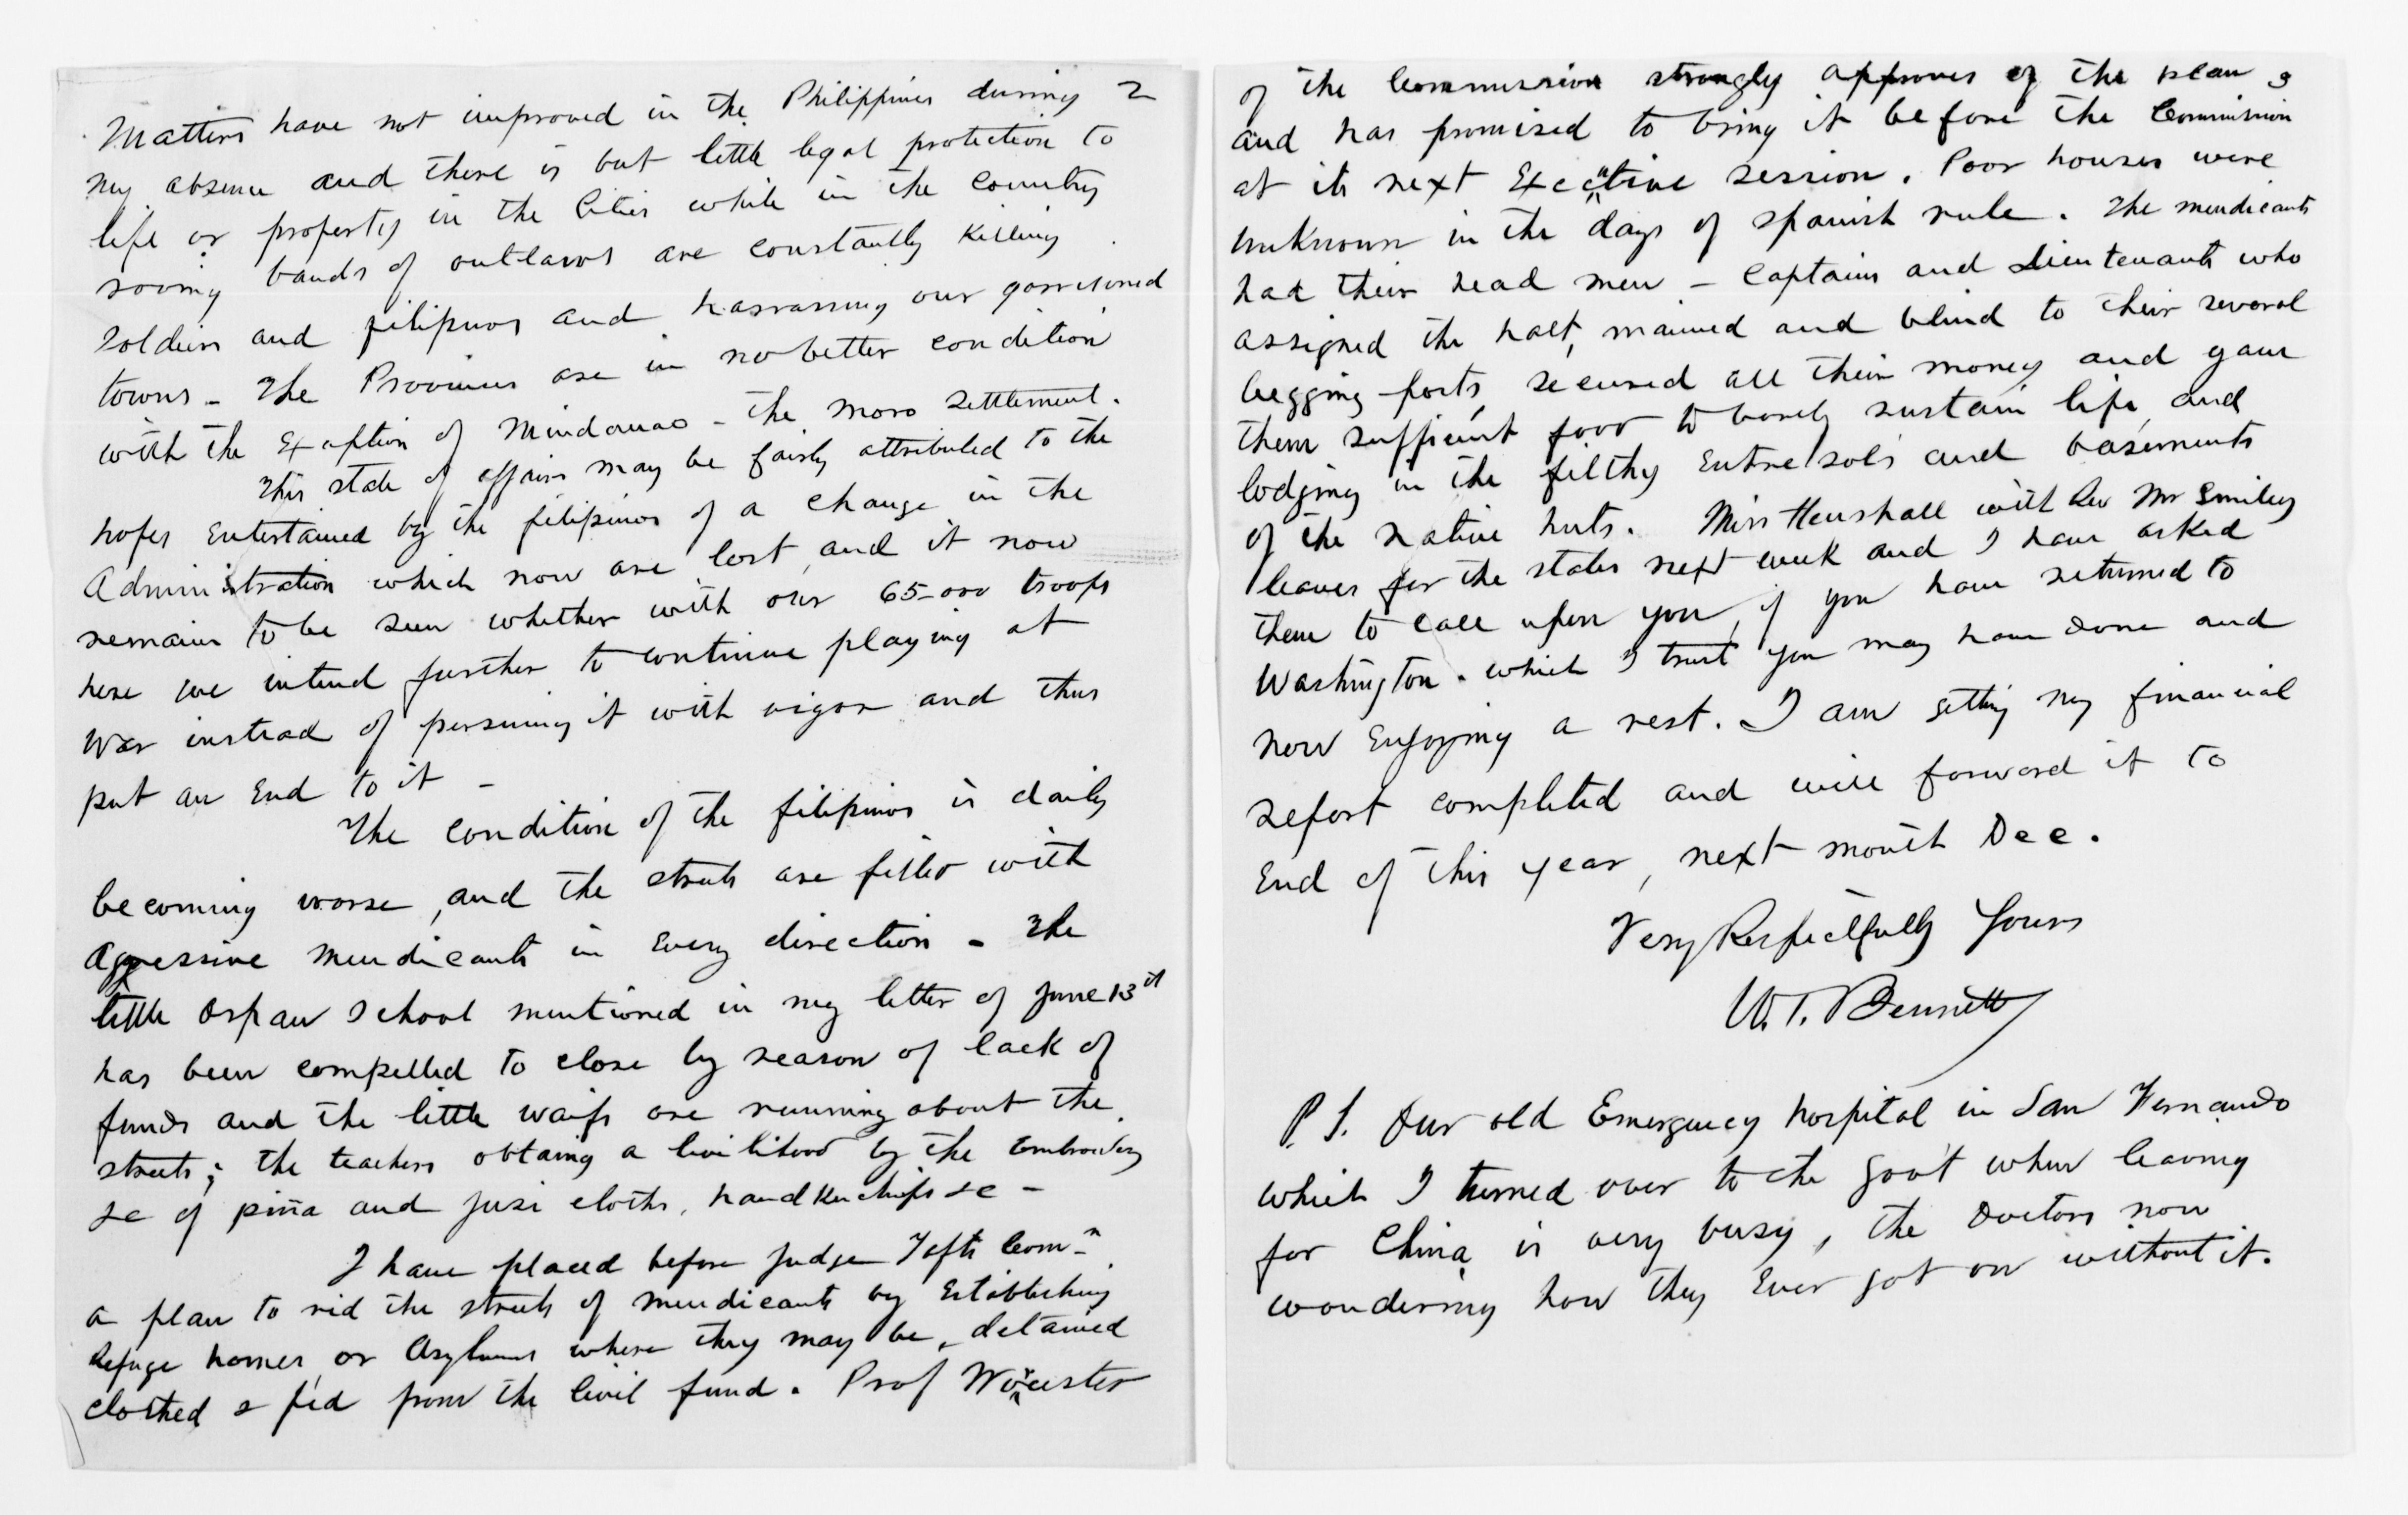 2
Matters have not improved in the Philippines during
my absence and there is but little legal protection to
life or property in the Cities while in the Country
roving bands of outlaws are constantly killing
soldiers and filipinos and harrassing our garrisoned
towns - The Provinces are in no better condition
with the Exception of Mindanao - the Moro settlement.
This state of affairs may be fairly attributed to the
hopes Entertained by the filipinos of a change in the
Administration which now are lost, and it now
remains to be seen whether with our 65-000 troops
here we intend further to continue playing at
War instead of persuing it with vigor and thus
put an End to it -
The condition of the filipinos is daily
becoming worse, and the streets are filled with
aggressive mendicants in Every direction - The
little Orphan School mentioned in my letter of June 13th
has been compelled to close by reason of lack of
funds and the little waifs are running about the
streets; the teachers obtaing a livilihood by the Embroidery
&c of piña and jusi cloths, handkerchiefs &c -
I have placed before Judge Tafts Comn
a plan to rid the streets of mendicants by Establishing
Refuge homes, or Asylums where they may be, detained
clothed & fed from the Civil fund. Prof Worcester
3
of the Commission strongly approves of the plan
and has promised to bring it before the Commission
at its next Executive session. Poor houses were
unknown in the days of Spanish rule. The mendicants
had their head men - Captains and Lieutenants who
assigned the halt, maimed and blind to their several
begging-posts, secured all their money and gave
them sufficient food to barely sustain life, and
lodging in the filthy Entresols and basements
of the native huts. Miss Henshall with Rev Mr Smiley
leaves for the states next week and I have asked
them to call upon you, if you have returned to
Washington. which I trust you may have done and
now Enjoying a rest. I am getting my financial
report completed and will forward it to
End of this year, next month Dec.
Very Respectfully Yours
W. T. Bennett
P.S. Our old Emergency hospital in San Fernando
which I turned over to the Govt when leaving
for China is very busy, the Doctors now
wondering how they Ever got on without it.